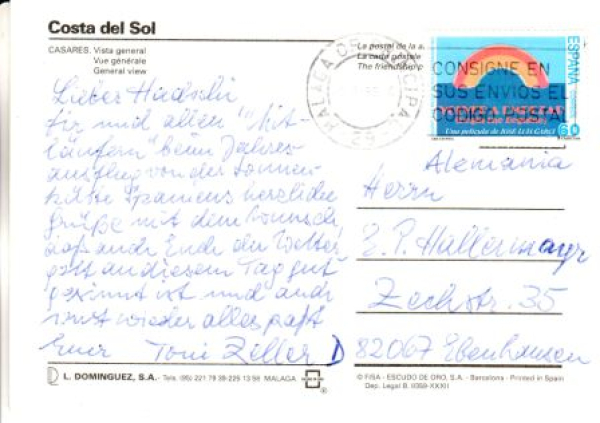 Costa del Sol
CASARES. Vista general
Vue générale
General view
La postal de la a
La carte postale
The friendship p
MALAGA
CONSIGNE EN
SUS ENVIOS EL
CODIGO POSTAL
ESPAÑA
VOLVER A EMPEZAR
Una película de JOSÉ LUIS GARCI
60
Lieber Hadschi
Dir und allen "Mit-
läufern" beim Jahres-
ausflug von der Sonnen-
küste Spaniens herzliche
Grüße mit dem Wunsch,
daß auch Ende der Wetter
gott an diesem Tag gut
gesinnt ist und auch
sonst wieder alles paßt
Euer Toni Ziller
Alemania
Herrn
E. P. Hallermayr
Zechstr. 35
D 82067 Ebenhausen
L. DOMINGUEZ, S.A. - Tels. (95) 221 79 39-225 13 58 MALAGA
© FISA - ESCUDO DE ORO, S.A. - Barcelona - Printed in Spain
Dep. Legal B. 9359-XXXII